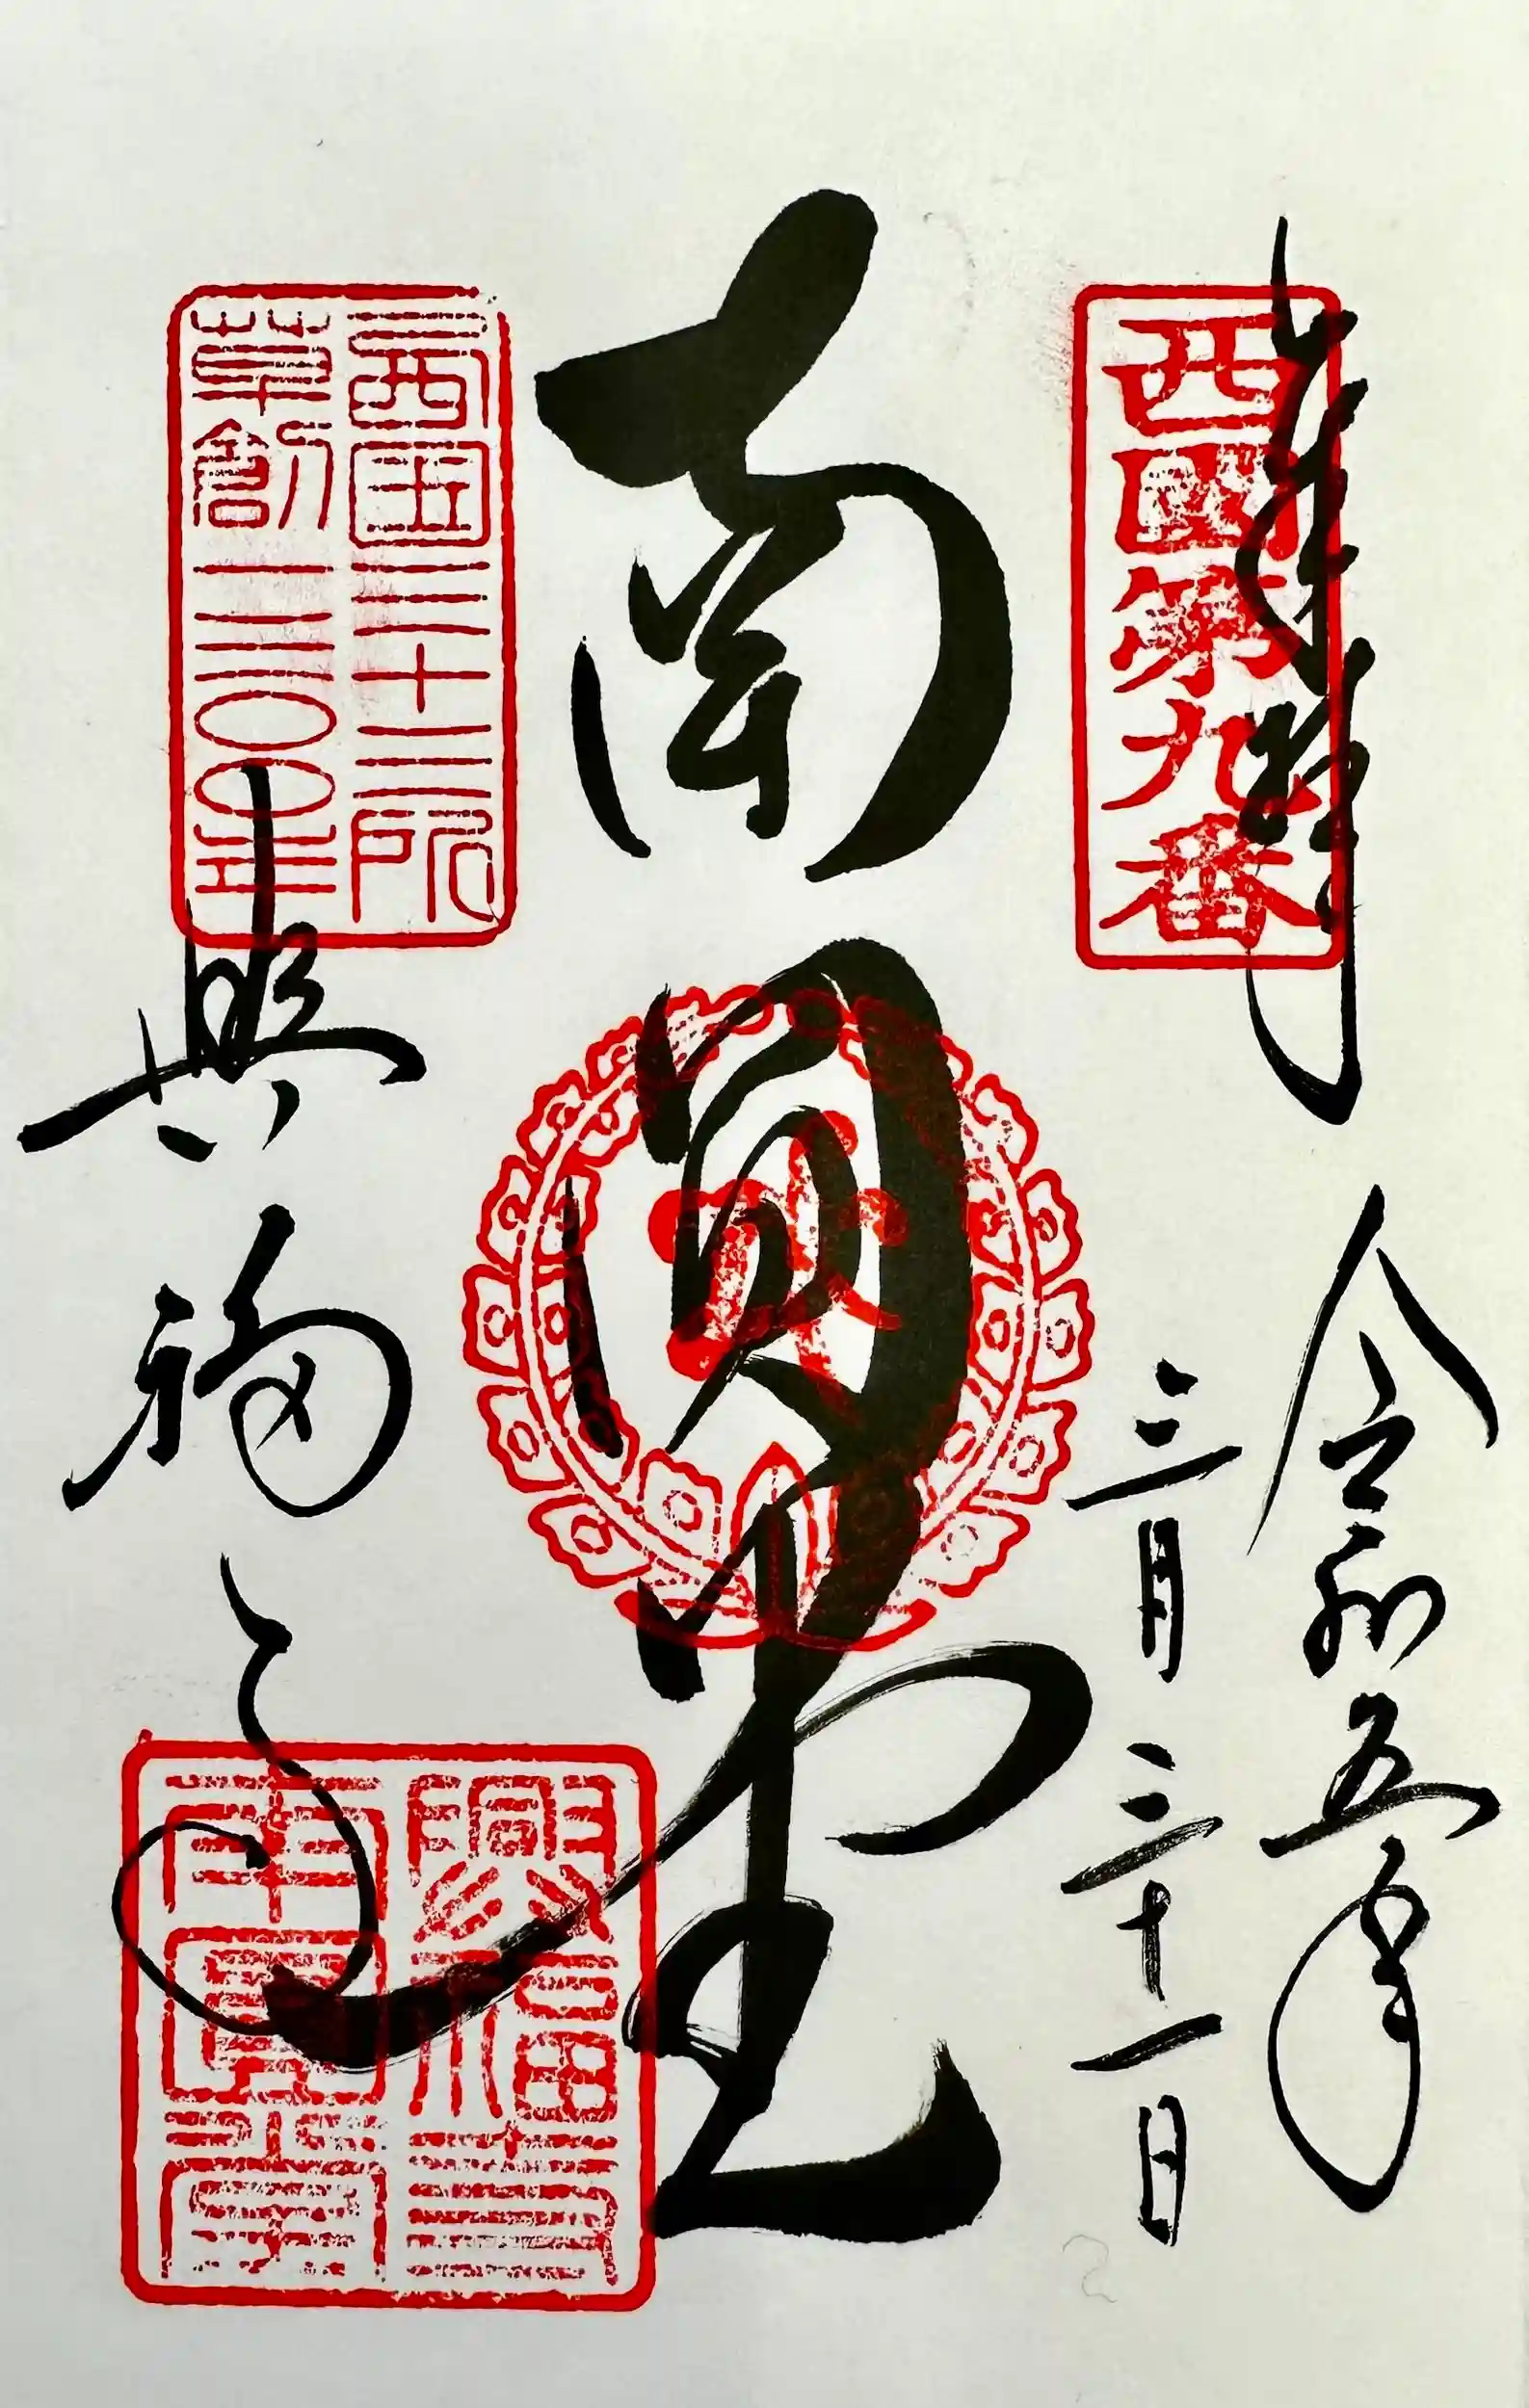 奉拝
西國第九番
令和五年
三月三十一日
南圓堂
西国三十三所
草創一三〇〇年
興福寺
興福寺
南圓堂